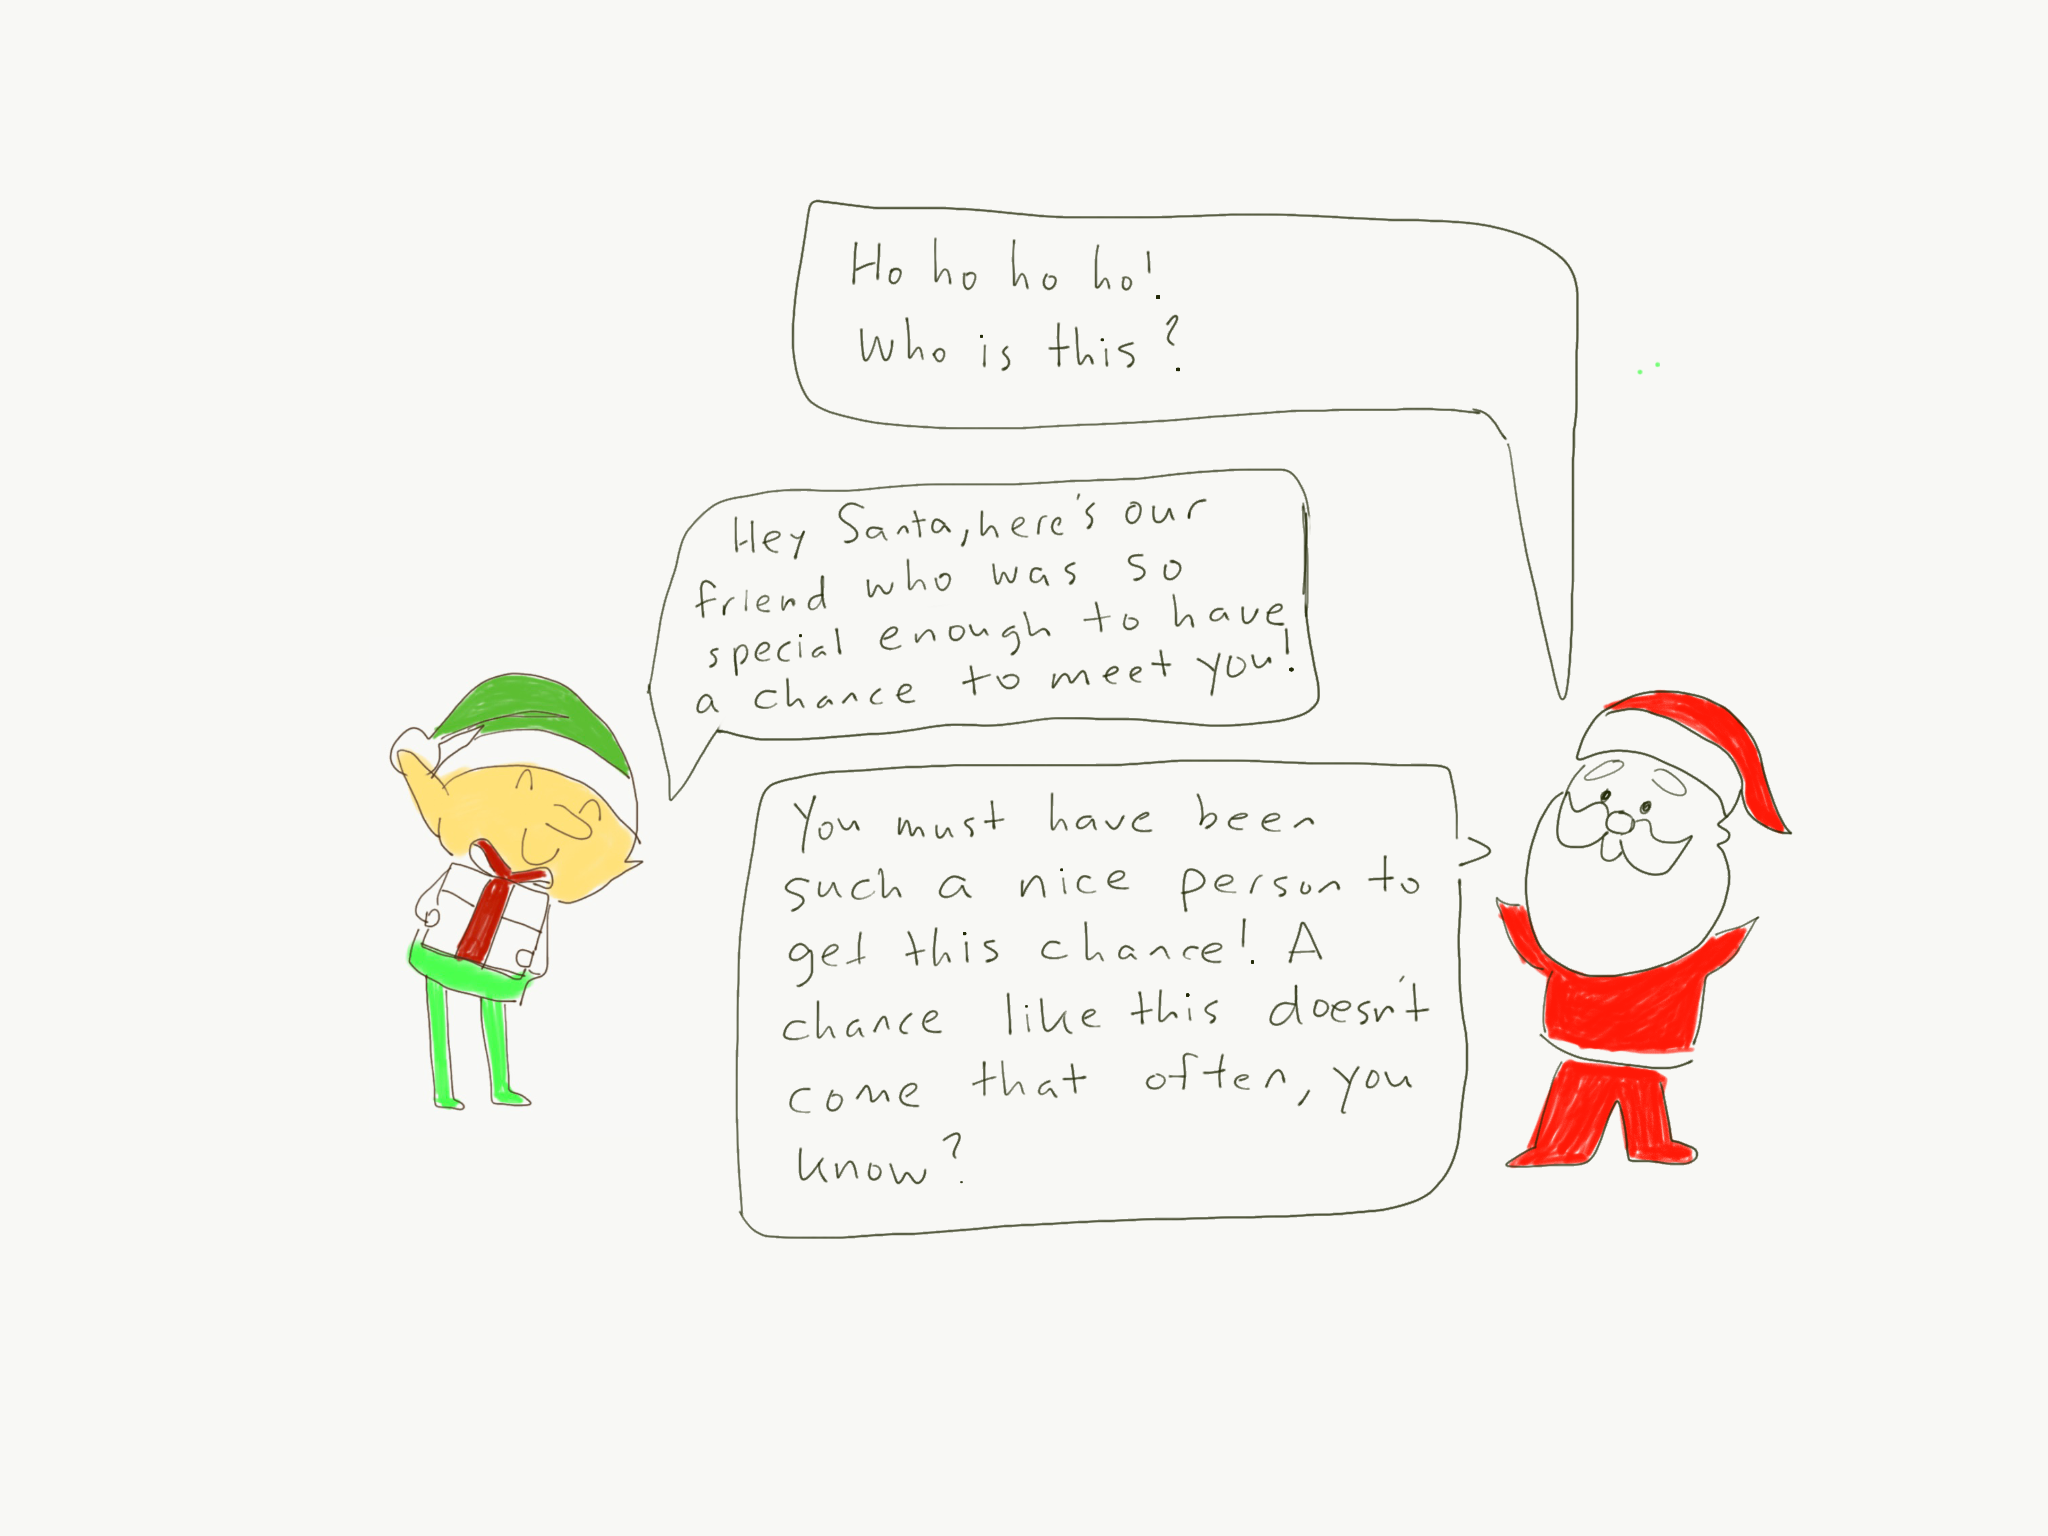 Ho ho ho ho!
Who is this?
Hey Santa, here's our
friend who was so
special enough to have
a chance to meet you!
You must have been
such a nice person to
get this chance! A
chance like this doesn't
come that often, you
know?